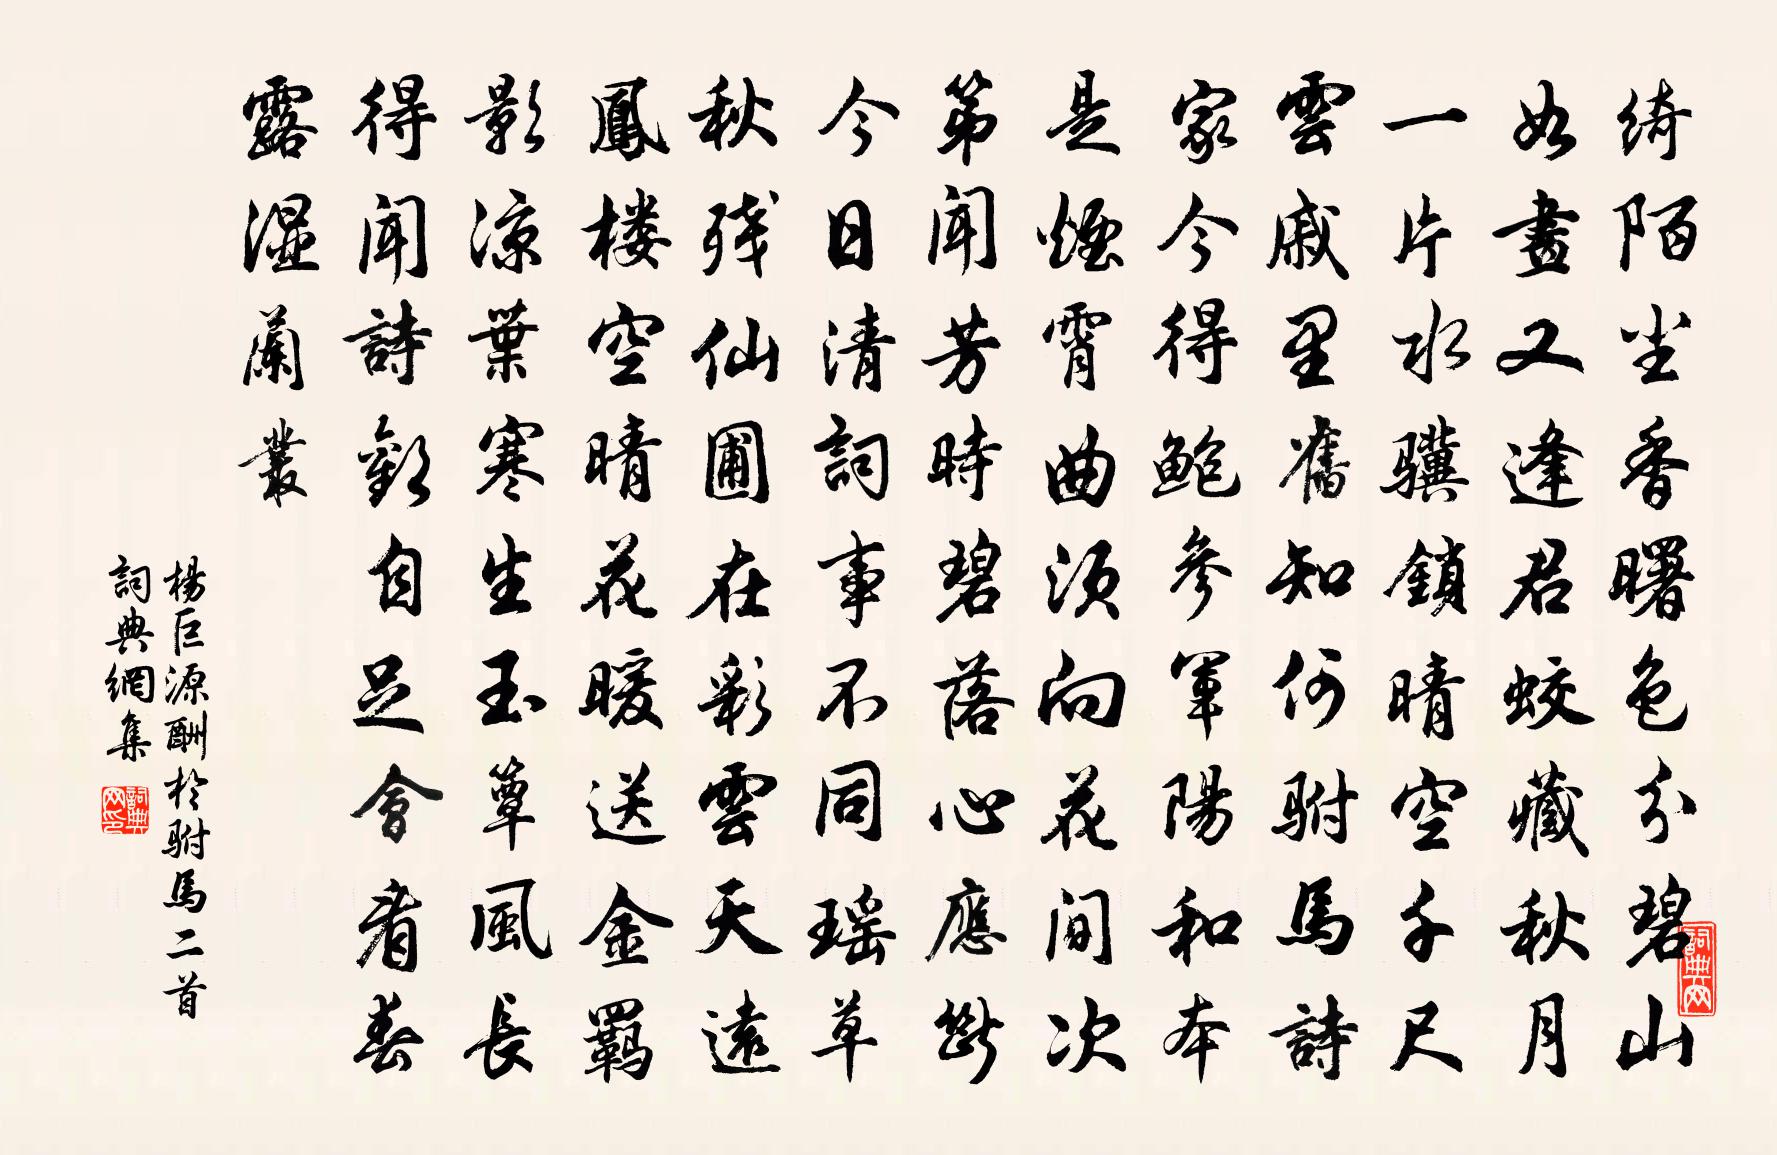 綺陌尘香曙色分碧山
如畫又逢君蛟藏秋月
一片水驥鎖晴空千尺
雲戚里舊知何駙馬詩
家今得鲍參軍陽和本
是煙霄曲須向花間次
第闻芳時碧落心應斷
今日清詞事不同瑶草
秋残仙圃在彩雲天遠
鳳楼空晴花暖送金羈
影凉葉寒生玉簟風長
得闻詩歡自足會看春
露湿蘭叢
楊巨源酬於駙馬二首
詞典網集
詞典网印
詞典网